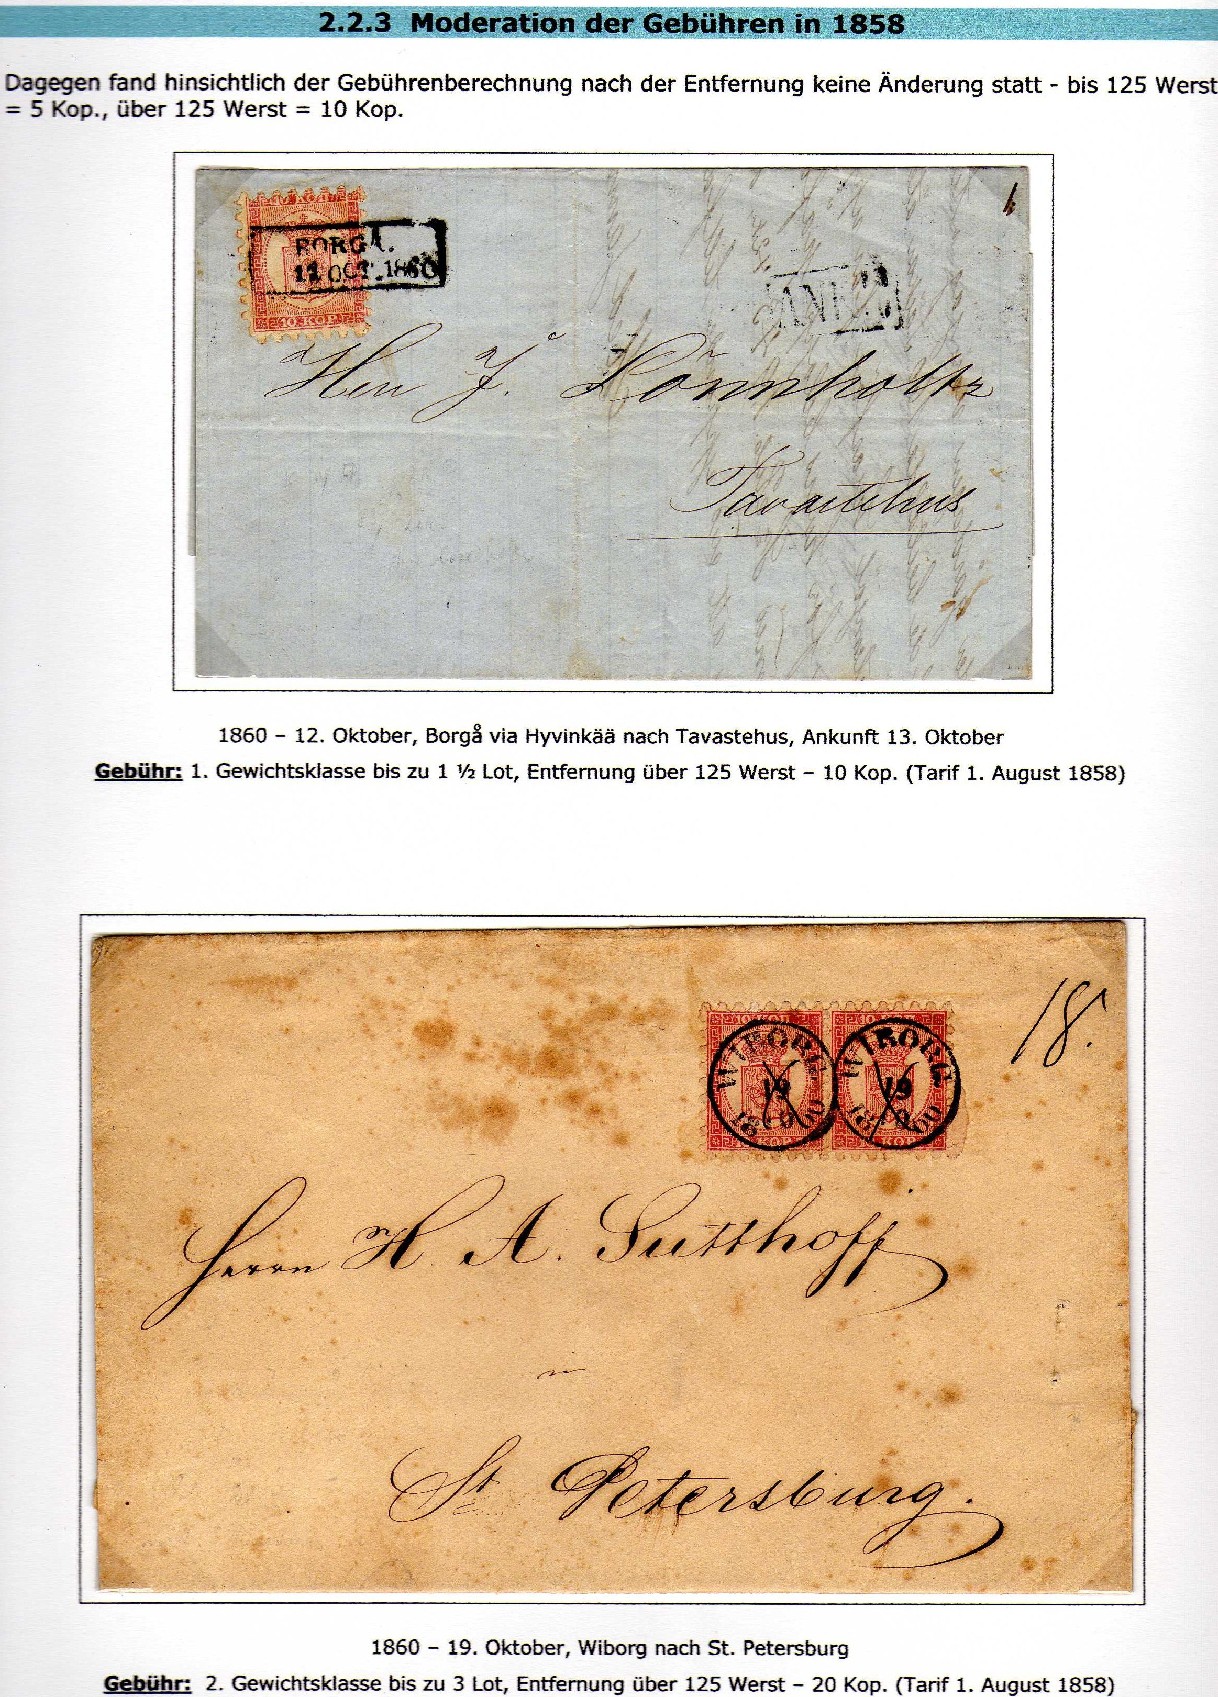 2.2.3 Moderation der Gebühren in 1858
Dagegen fand hinsichtlich der Gebührenberechnung nach der Entfernung keine Änderung statt - bis 125 Werst
= 5 Kop., über 125 Werst = 10 Kop.
BORGÅ.
12 OCT. 1860
10 KOP.
ANK
Herr J. Lönnholtz
Tavastehus
1860 – 12. Oktober, Borgå via Hyvinkää nach Tavastehus, Ankunft 13. Oktober
Gebühr: 1. Gewichtsklasse bis zu 1 ½ Lot, Entfernung über 125 Werst – 10 Kop. (Tarif 1. August 1858)
18.
WIBORG WIBORG
19 19
10 KOP. 10 KOP.
Herrn H. A. Sutthoff
in
St. Petersburg.
1860 – 19. Oktober, Wiborg nach St. Petersburg
Gebühr: 2. Gewichtsklasse bis zu 3 Lot, Entfernung über 125 Werst – 20 Kop. (Tarif 1. August 1858)